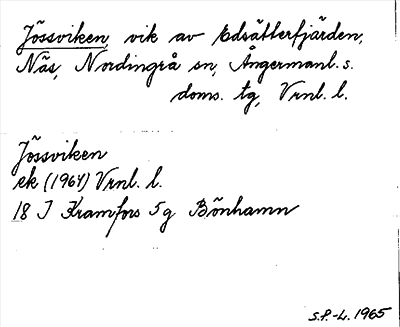 Jössviken, vik av Edsätterfjärden,
Näs, Nordingrå sn, Ångermanl. s.
doms. tg, Vrnl. l.
Jössviken
ek (1964) Vrnl. l.
18 J Kramfors 5g Bönhamn
S.P.-L. 1965